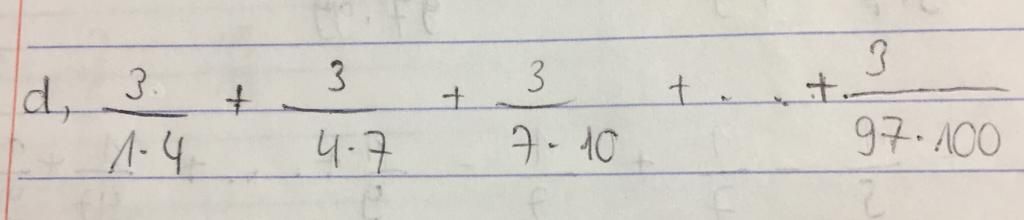 d, 3/(1·4) + 3/(4·7) + 3/(7·10) + . . . + 3/(97·100)